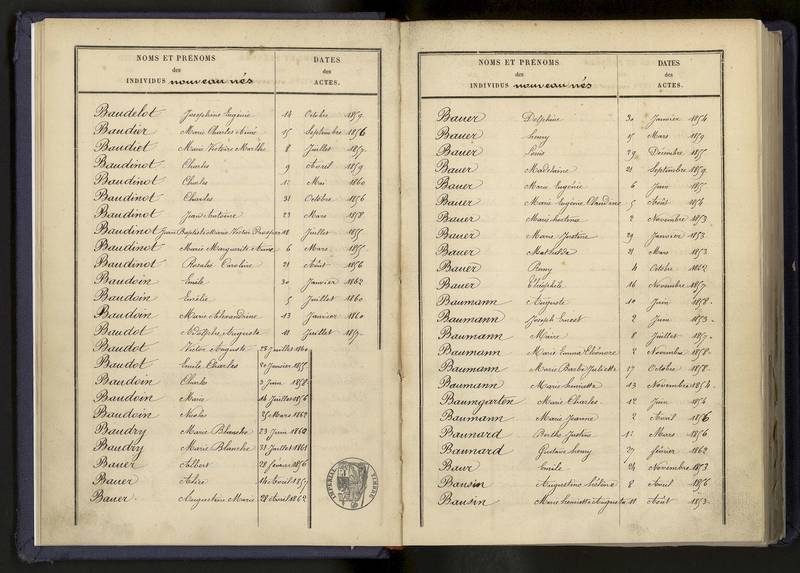 NOMS ET PRÉNOMS
des
INDIVIDUS nouveau nés
DATES
des
ACTES.
Baudelot Joséphine Eugénie 14 Octobre 1859
Baudier Marie Charles Aimé 15 Septembre 1856
Baudiet Marie Victoire Marthe 8 Juillet 1857
Baudinot Charles 9 Avril 1859
Baudinot Charles Mai 1860
Baudinot Charles 31 Octobre 1856
Baudinot Jean Antoine 23 Mars 1858
Baudinot Jean Baptiste Marie Victor Prosper 18 Juillet 1855
Baudinot Marie Marguerite Anne 6 Mars 1855
Baudinot Rosalie Caroline 21 Août 1856
Baudoin Emile 30 Janvier 1862
Baudoin Emélie 5 Juillet 1860
Baudoin Marie Alexandrine 13 Janvier 1860
Baudot Adolphe Auguste 11 Juillet
Baudot Victor Auguste 23 Juillet 1860
Baudot Emile Charles 20 Janvier 1855
Baudoin Charles 3 Juin 1858
Baudoin Marie 14 Juillet 1856
Baudoin Nicolas 25 Mars 1862
Baudry Marie Blanche 23 Juin 1860
Baudry Marie Blanche 31 Juillet 1861
Bauer Albert 28 février 1856
Bauer 14 Avril 1857
Bauer Augustine Marie 28 Avril 1862
TIMBRE IMPERIAL
NOMS ET PRÉNOMS
des
INDIVIDUS nouveau nés
DATES
des
ACTES.
Bauer Delphine 30 Janvier 1854
Bauer henry 15 Mars 1859
Bauer Louis 29 Décembre 1855
Bauer Madelaine 21 Septembre 1859
Bauer Marie Eugénie 6 Juin 1855
Bauer Marie Eugénie Claudine 5 Août 1856
Bauer Marie 2 Novembre 1853
Bauer Marie Justine 29 Janvier 1853
Bauer Mathilde 21 Mars 1853
Bauer Remy 4 Octobre 1862
Bauer Théophile 16 Novembre 1857
Baumann Auguste 10 Juin 1858
Baumann Joseph Ernest 2 Juin 1853
Baumann 8 Juillet 1857
Baumann Marie Emma Eléonore 2 Novembre 1858
Baumann Marie Barbe Juliette 17 Octobre 1858
Baumann Marie henriette 13 Novembre 1854
Baumgarten Marie Charles 12 Juin 1854
Baumann Marie Jeanne 2 Avril 1856
Baunard Berthe Justine Mars 1856
Baunard Gustave henry 27 février 1862
Baur Emile 24 Novembre 1853
Bausin Augustine 8 Avril 1856
Bausin Marie henriette Augusta 11 Août 1853